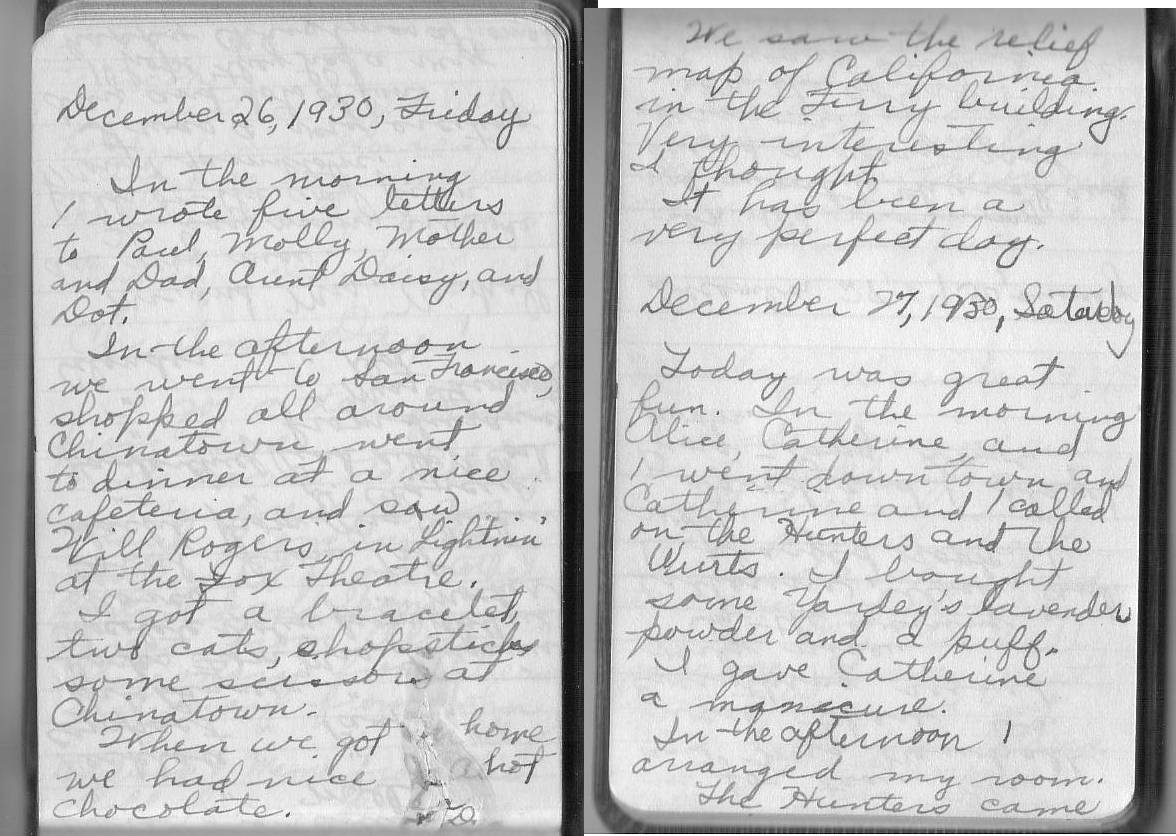 December 26, 1930, Friday
In the morning
I wrote five letters
to Paul, Molly, Mother
and Dad, Aunt Daisy, and
Dot.
In the afternoon
we went to San Francisco,
shopped all around
Chinatown, went
to dinner at a nice
cafeteria, and saw
Will Rogers in "Lightnin'"
at the Fox Theatre.
I got a bracelet,
two cats, chopsticks
some scissors at
Chinatown.
When we got home
we had nice hot
chocolate.
We saw the relief
map of California
in the Ferry building.
Very interesting
I thought.
It has been a
very perfect day.
December 27, 1930, Saturday
Today was great
fun. In the morning
Alice, Catherine, and
I went down town and
Catherine and I called
on the Hunters and the
Wurts. I bought
some Yardley's lavender
powder and a puff.
I gave Catherine
a manacure.
In the afternoon I
arranged my room.
The Hunters came